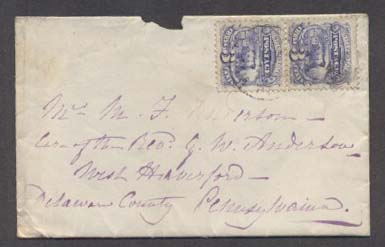 Mrs M. F. Anderson —
Care of the Rev. G. W. Anderson
West Haverford —
Delaware County Pennsylvania.